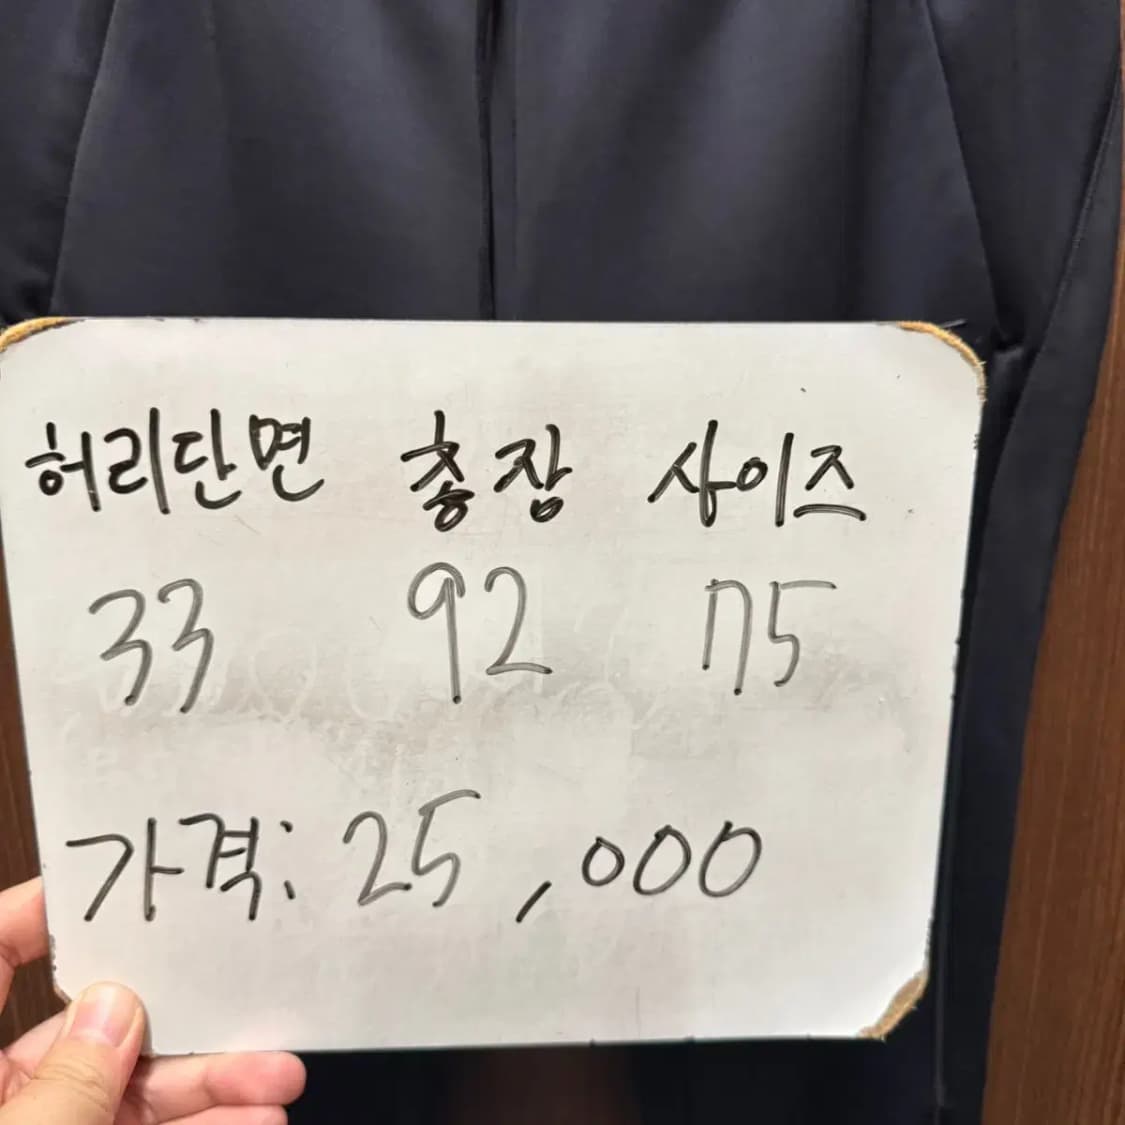 허리단면 총장 사이즈
33 92 75
가격: 25,000